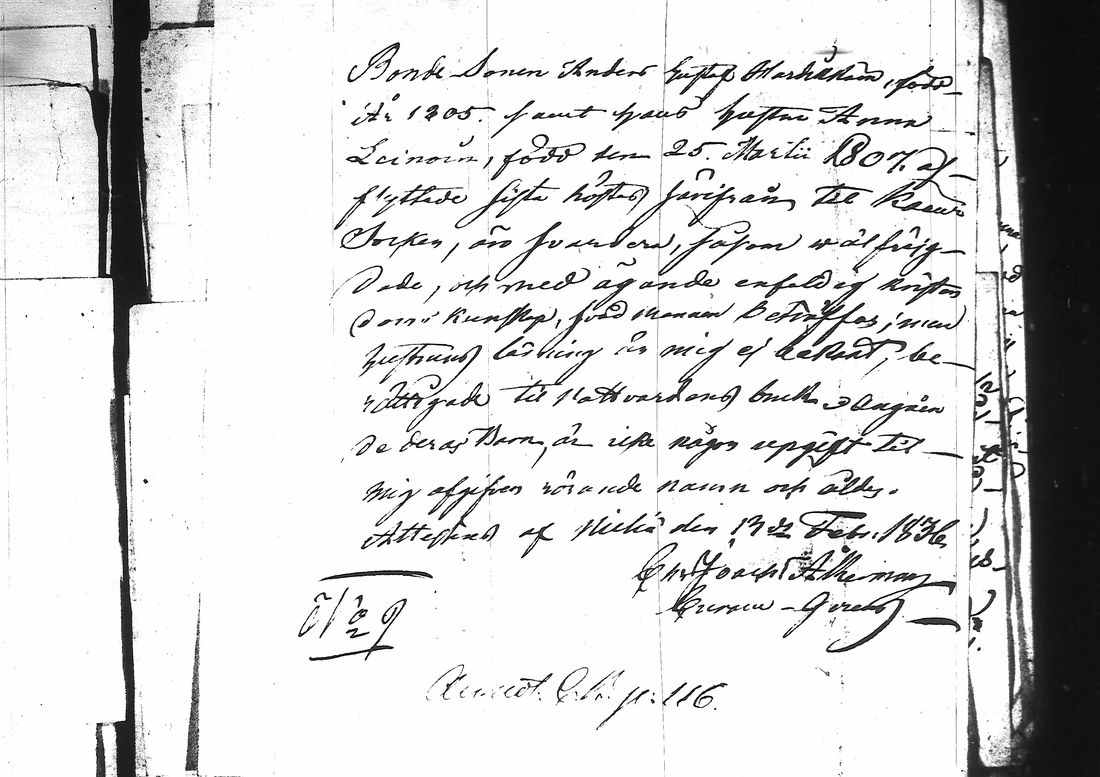 Bonde Sonen Anders Gustaf Harikkain, född
År 1805. samt hans hustru Anna
Leinoin, född den 25. Martii 1807. af-
flyttade sista höstas härifrån til
Socken, äro hvardera, såsom wäl frejg-
dade, och med ägande enfaldig kristen
doms kunskap, hvad mannen beträffar; men
hustruns läsning är mig ej bekant, be-
rättigade til Nattvardens bruk. Angåen
de deras Barn, är icke någon upgift til
mig afgifven rörande namn och ålder.
Attesteras af den 13de Febr. 1836.
Joach
p. 116.